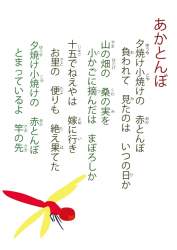 あかとんぼ
夕焼け小焼けの 赤とんぼ
負われて 見たのは いつの日か
山の畑の 桑の実を
小かごに摘んだは まぼろしか
十五でねえやは 嫁に行き
お里の 便りも 絶え果てた
夕焼け小焼けの 赤とんぼ
とまっているよ 竿の先